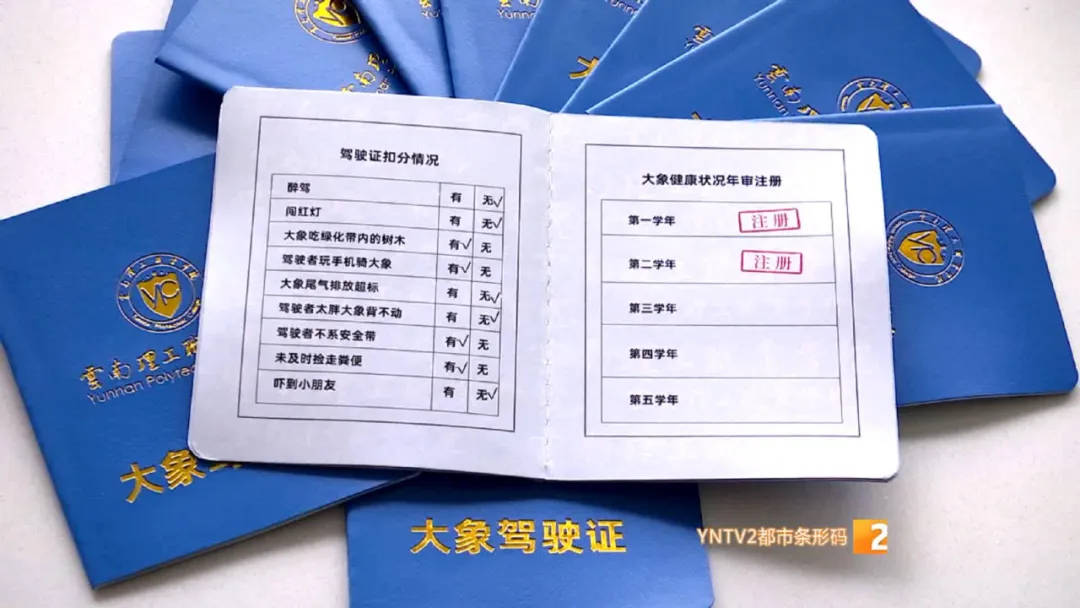 Yunnan
雲南
Yunnan
驾驶证扣分情况
醉驾 有 无√
闯红灯 有 无√
大象吃绿化带内的树木 有√ 无
驾驶者玩手机骑大象 有√ 无
大象尾气排放超标 有 无√
驾驶者太胖大象背不动 有 无√
驾驶者不系安全带 有√ 无
未及时捡走粪便 有√ 无
吓到小朋友 有 无√
大象健康状况年审注册
第一学年 注册
第二学年 注册
第三学年
第四学年
第五学年
雲南理工職
Yunnan Polytec
大象驾
大象驾驶证
YNTV2都市条形码 2